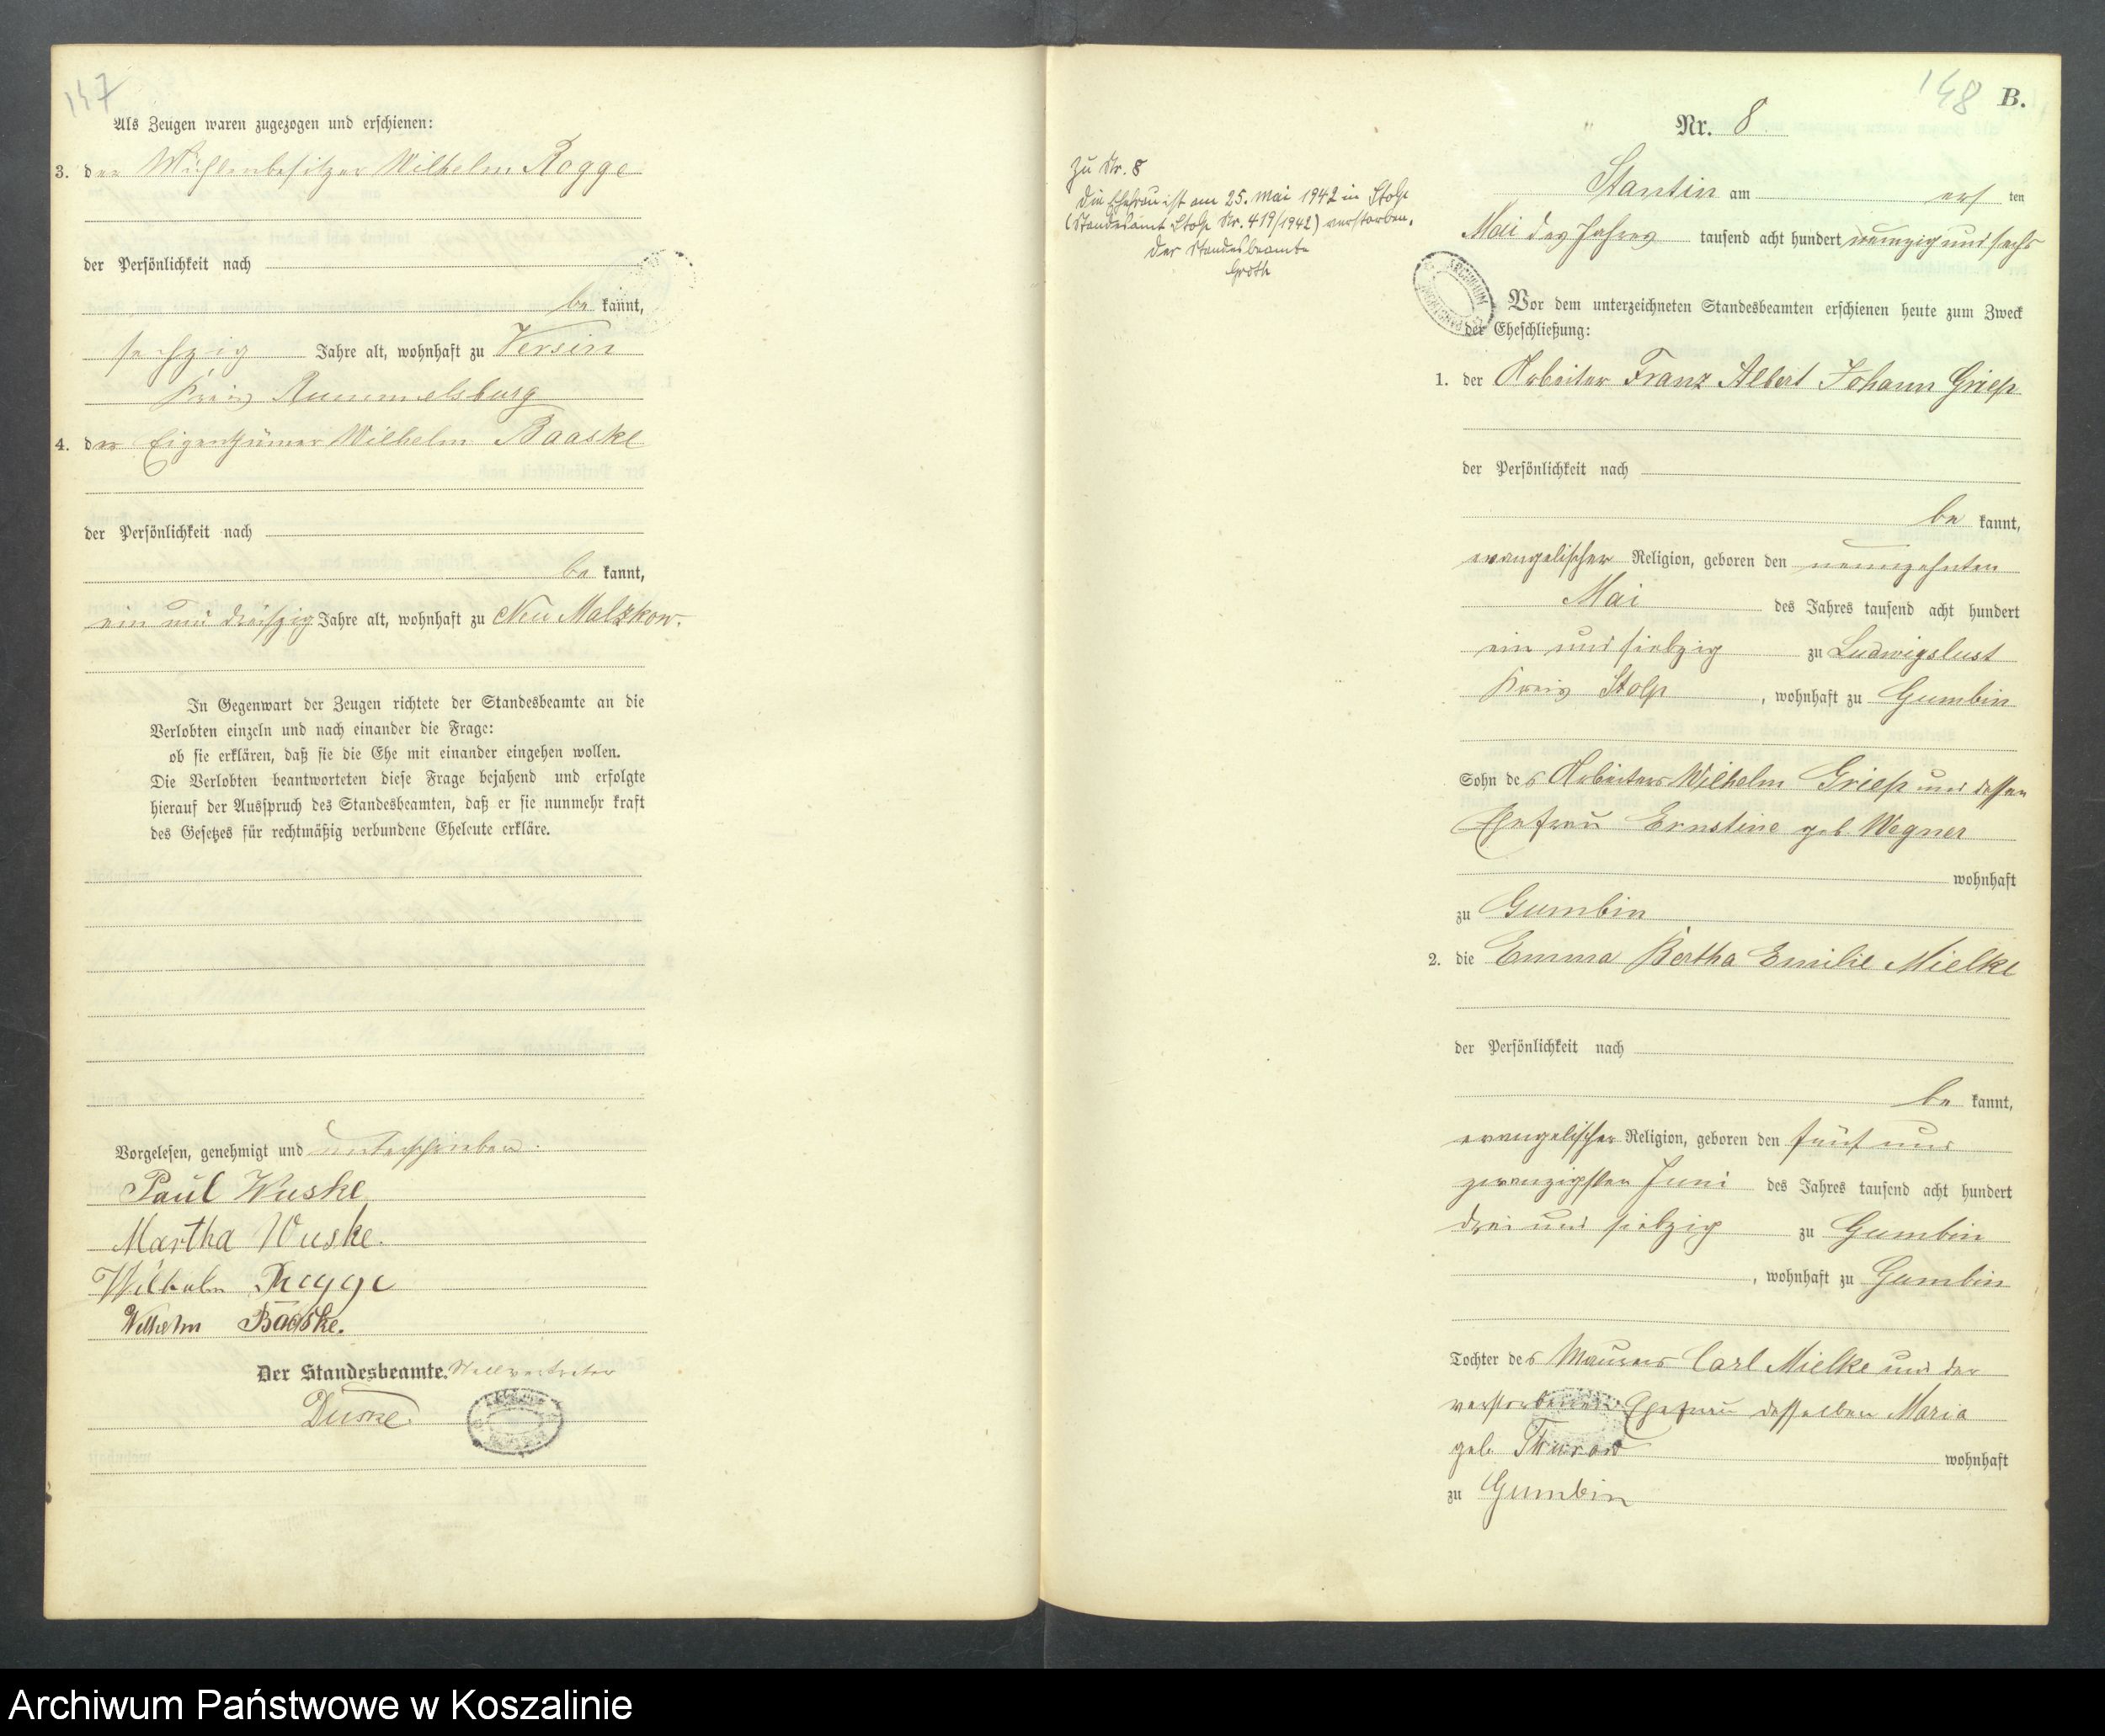 147
Als Zeugen waren zugezogen und erschienen:
3. der Mühlenbesitzer Wilhelm Rogge
der Persönlichkeit nach
be kannt,
sechzig Jahre alt, wohnhaft zu Versin
Kreis Rummelsburg
4. der Eigenthümer Wilhelm Baaske
der Persönlichkeit nach
be kannt,
ein und dreißig Jahre alt, wohnhaft zu Neu Malzkow.
In Gegenwart der Zeugen richtete der Standesbeamte an die
Verlobten einzeln und nach einander die Frage:
ob sie erklären, daß sie die Ehe mit einander eingehen wollen.
Die Verlobten beantworteten diese Frage bejahend und erfolgte
hierauf der Ausspruch des Standesbeamten, daß er sie nunmehr kraft
des Gesetzes für rechtmäßig verbundene Eheleute erkläre.
Vorgelesen, genehmigt und unterschrieben.
Paul Wuske
Martha Wuske.
Wilhelm Rogge
Wilhelm Baaske.
Der Standesbeamte. Stellvertreter
148
B.
Nr. 8
zu Nr. 8
Die Ehefrau ist am 25. Mai 1942 in Stolp
(Standesamt Stolp Nr. 419/1942) verstorben.
Der Standesbeamte
Groth
Stantin am ers ten
Mai des Jahres tausend acht hundert neunzig und sechs
Vor dem unterzeichneten Standesbeamten erschienen heute zum Zweck
der Eheschließung:
1. der Arbeiter Franz Albert Johann Griep
der Persönlichkeit nach
be kannt,
evangelischer Religion, geboren den neunzehnten
Mai des Jahres tausend acht hundert
ein und siebzig zu Ludwigslust
Kreis Stolp, wohnhaft zu Gumbin
Sohn des Arbeiters Wilhelm Griep und dessen
Ehefrau Ernstine geb. Wegner
wohnhaft
zu Gumbin
2. die Emma Bertha Emilie Mielke
der Persönlichkeit nach
be kannt,
evangelischer Religion, geboren den fünf und
zwanzigsten Juni des Jahres tausend acht hundert
drei und siebzig zu Gumbin
, wohnhaft zu Gumbin
Tochter des Maurers Carl Mielke und der
verstorbenen Ehefrau desselben Maria
geb. Thurow wohnhaft
zu Gumbin
Archiwum Państwowe w Koszalinie